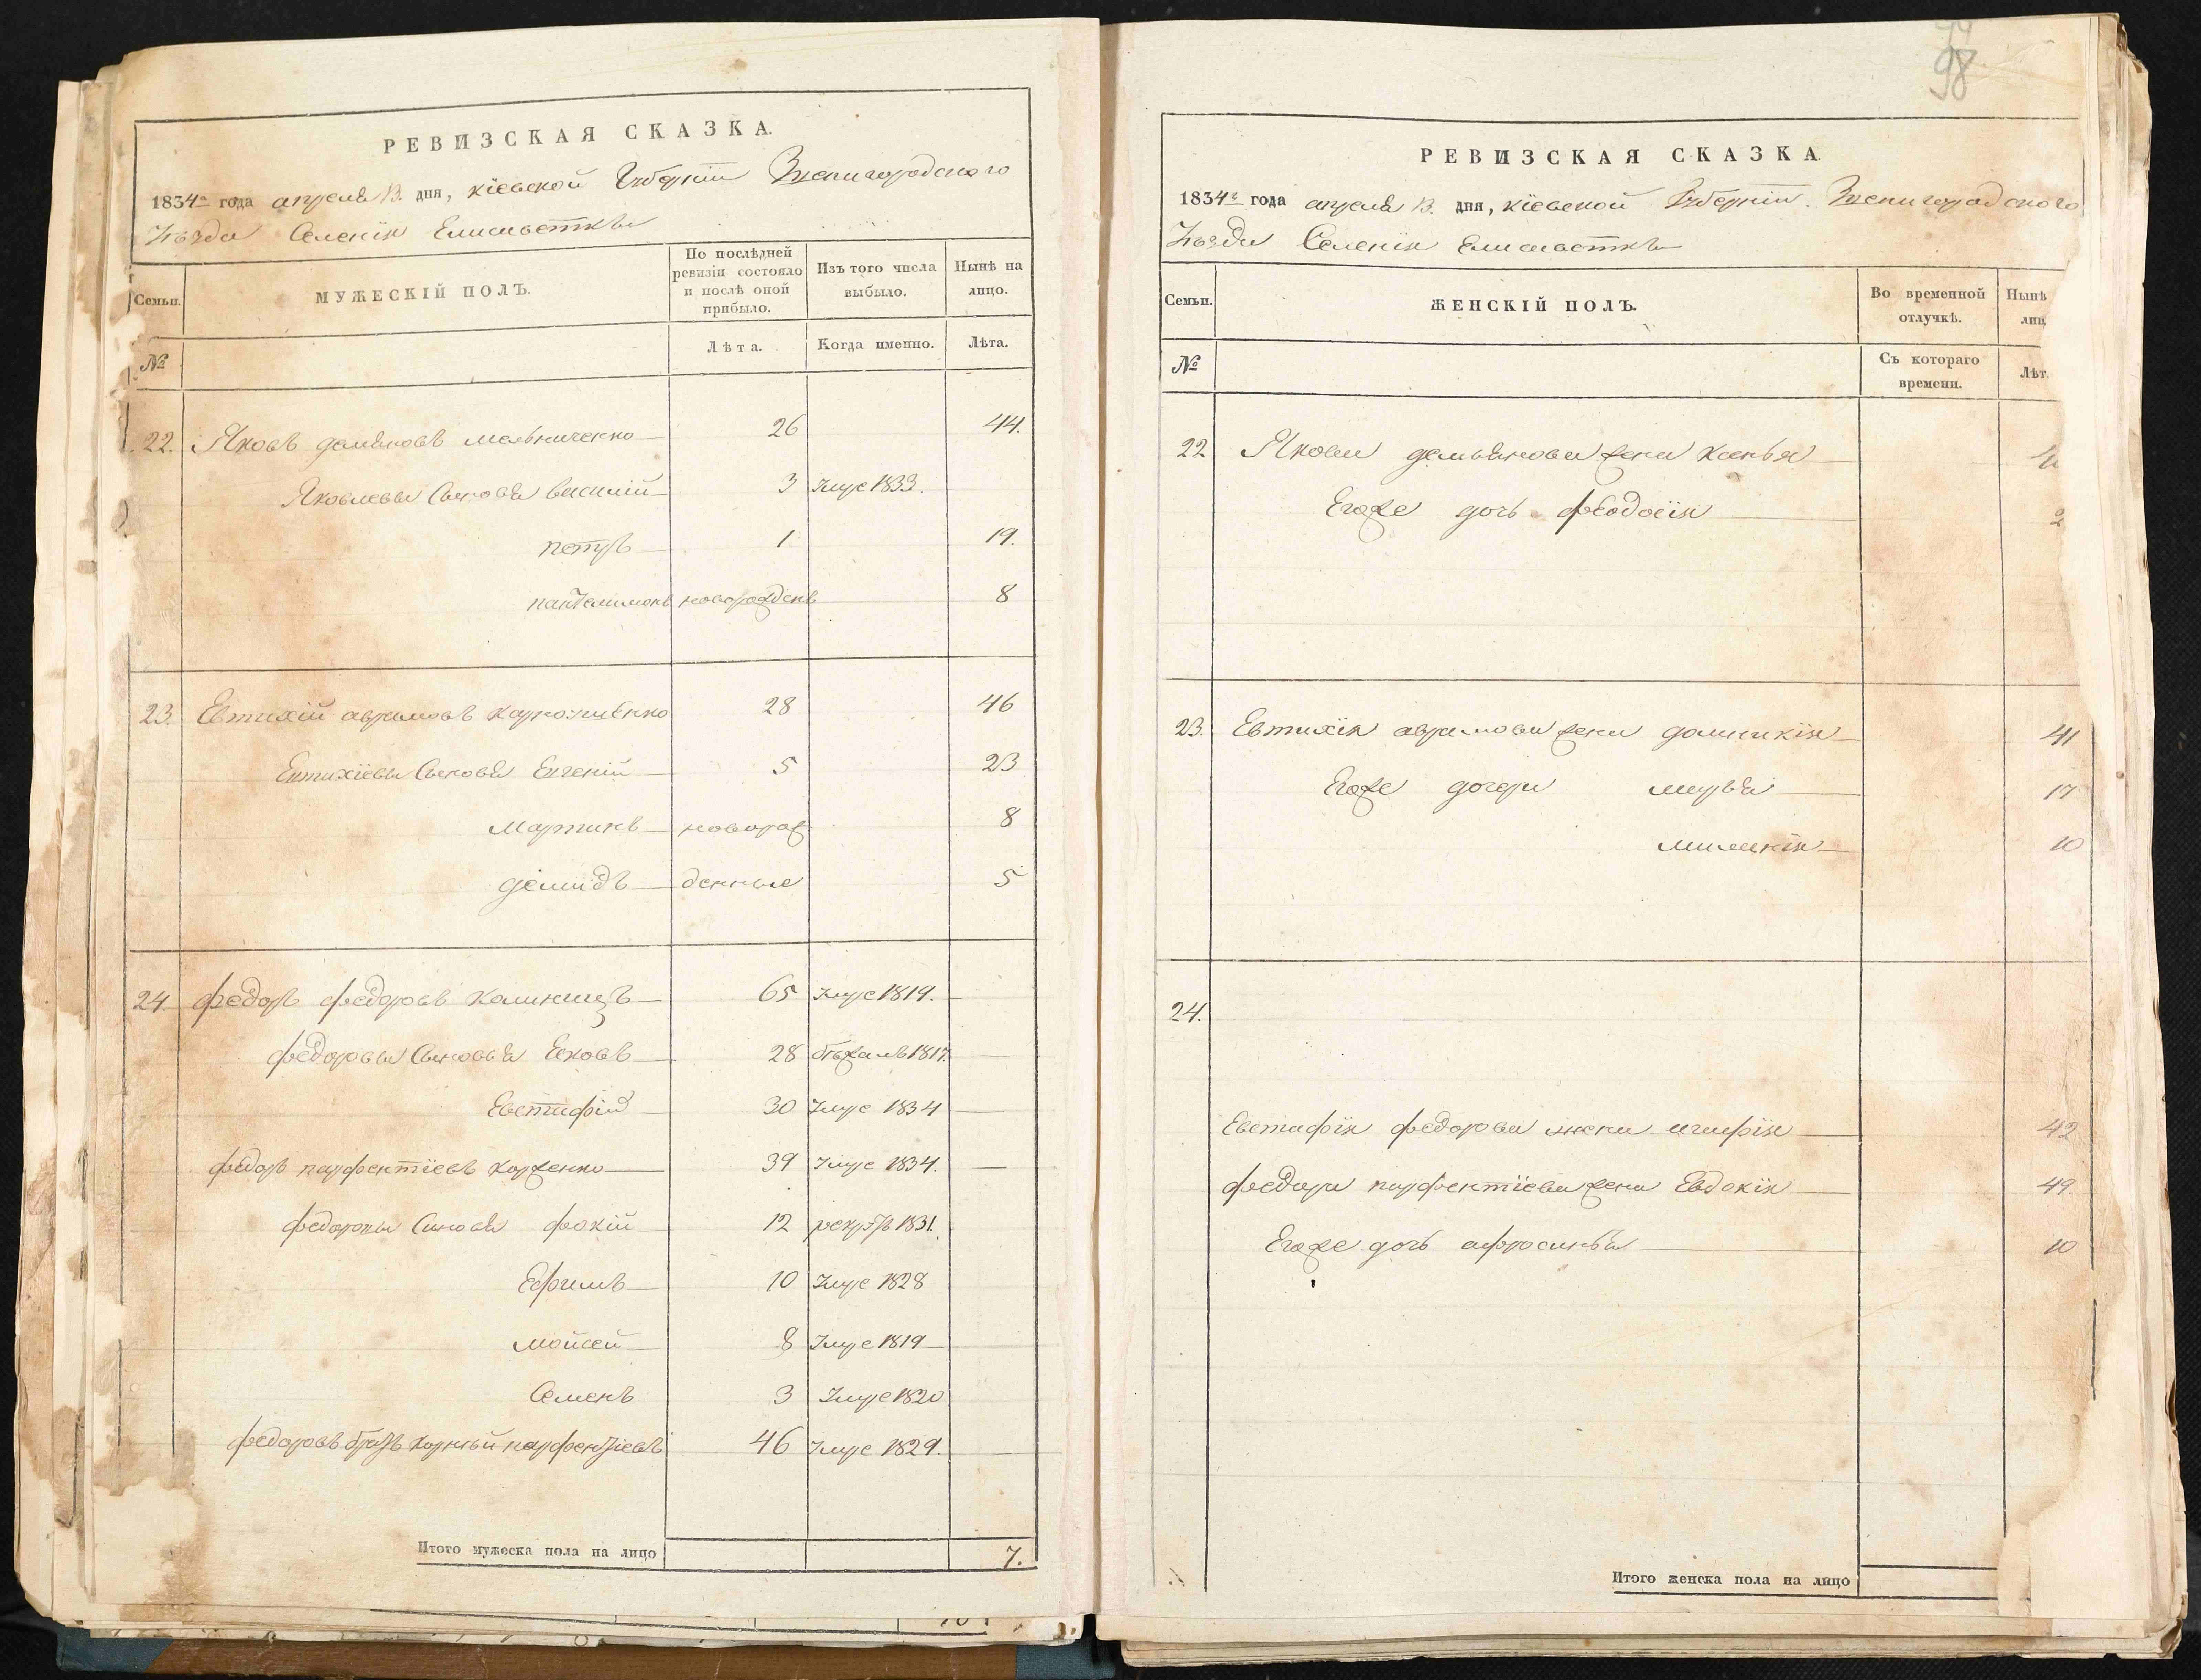 РЕВИЗСКАЯ СКАЗКА.
1834го года апреля 13. дня, кіевской Губерніи Звенигородского
Уѣзда Селенія Елисаветки
Семьи.
МУЖЕСКІЙ ПОЛЪ.
По послѣдней ревизіи состояло и послѣ оной прибыло.
Изъ того числа выбыло.
Нынѣ на лицо.
№
Лѣта.
Когда именно.
Лѣта.
22. Яковъ демяновъ мельниченко 26 44.
Яковлевы Сыновя василій 3 Умре 1833.
петръ 1 19.
пантелимонъ новорожденъ 8
23. Евтихій аврамовъ 28 46
Евтихіевы Сыновя Евгеній 5 23
мартинъ новорож 8
демидъ денные 5
24. федоръ федоровъ калинецъ 65 Умре 1819.
федоровы Сыновья 28 бѣжалъ 1817.
Евстафій 30 Умре 1834
федоръ парфентіевъ корженко 39 Умре 1834.
федоровы Синовя фокій 12 рекрутъ 1831.
Ефимъ 10 Умре 1828
мойсей 8 Умре 1819
Семенъ 3 Умре 1820
федоровъ братъ корнѣй парфентіевъ 46 Умре 1829.
Итого мужеска пола на лицо 7.
98
РЕВИЗСКАЯ СКАЗКА
1834го года апреля 13. дня, кіевской Губерніи. Звенигородского
Уѣзда Селенія Елисаветки
Семьи.
ЖЕНСКІЙ ПОЛЪ.
Во временной отлучкѣ.
Нынѣ
лиц
№
Съ котораго времени.
Лѣт
22 Якова демьянова жена ксенья
Егоже дочь феодосія 2
23. Евтихія аврамова жена домникія 41
Егоже дочери марья 17
миланія 10
24.
Евстафія федорова жена агафія 42
федора парфентіева жена Евдокія 49
Егоже дочь афросинья 10
Итого женска пола на лицо